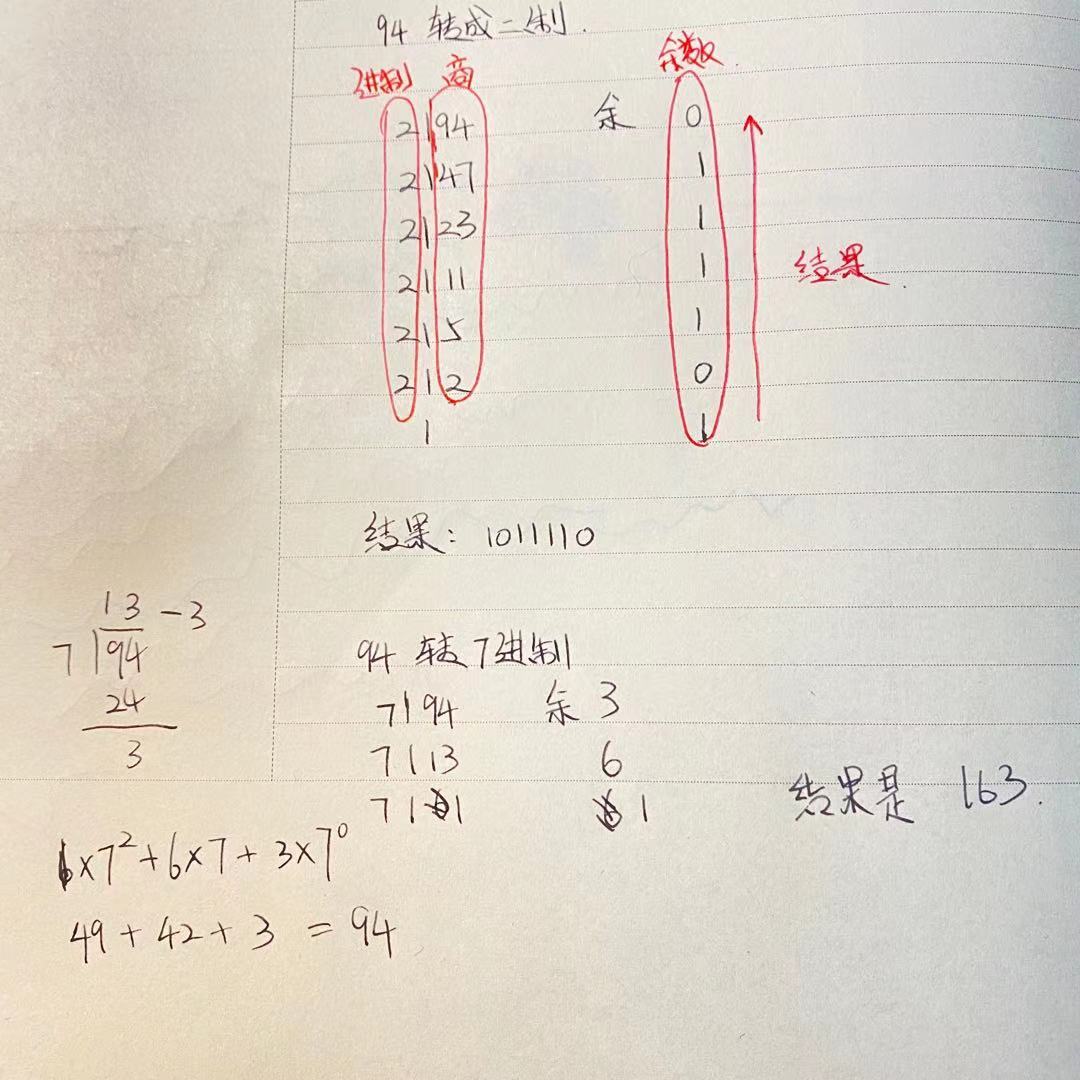 94 转成二制.
进制 商 余数
2|94 余 0
2|47 1
2|23 1
2|11 1
结果
2|5 1
2|2 0
1 1
结果: 1011110
13-3
7|94
24
3
94 转 7进制
7|94 余 3
7|13 6
7|1 1
结果是 163.
1×7²+6×7+3×7⁰
49+42+3=94